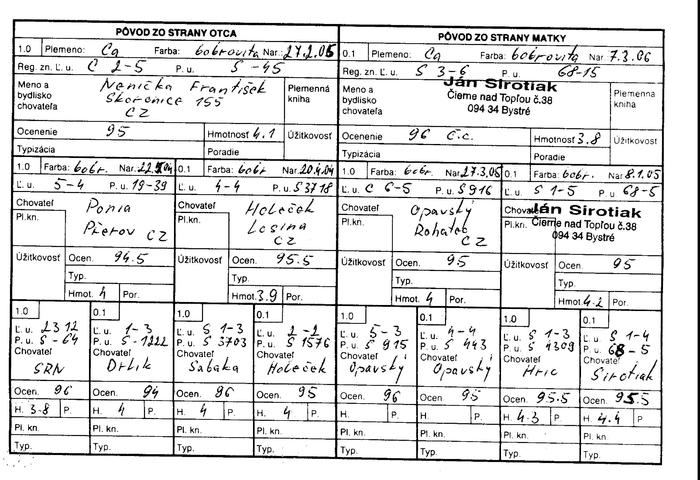 PÔVOD ZO STRANY OTCA
1.0 Plemeno: Ca Farba: bobrovita Nar.: 27.2.05
Reg. zn. Ľ. u. C 2-5 P. u. S-45
Meno a bydlisko chovateľa
Nenička František
Skoronice 155
CZ
Plemenná kniha
Ocenenie 95 Hmotnosť 4.1 Úžitkovosť
Typizácia Poradie
PÔVOD ZO STRANY MATKY
0.1 Plemeno: Ca Farba: bobrovita Nar 7.3.06
Reg. zn. Ľ. u. S 3-6 P. u. 68-15
Meno a bydlisko chovateľa
Ján Sirotiak
Čierne nad Topľou č.38
094 34 Bystré
Plemenná kniha
Ocenenie 96 č.c. Hmotnosť 3.8 Úžitkovosť
Typizácia Poradie
1.0 Farba: bobr. Nar.
Ľ. u. 5-4 P. u. 19-39
Chovateľ
Pl.kn.
Přerov CZ
Úžitkovosť Ocen. 94.5
Typ.
Hmot. 4 Por.
0.1 Farba: bobr Nar. 20.4.04
Ľ. u. 4-4 P. u. S 3718
Chovateľ
Pl.kn.
Holeček
Lesina
CZ
Úžitkovosť Ocen. 95.5
Typ.
Hmot. 3.9 Por.
1.0 Farba: bobr. Nar. 27.3.05
Ľ. u. C 6-5 P. u. S 916
Chovateľ
Pl.kn.
Opavský
Rohatec
CZ
Úžitkovosť Ocen. 95
Typ.
Hmot. 4 Por.
0.1 Farba: bobr. Nar. 8.1.05
Ľ. u. S 1-5 P. u 68-5
Chovateľ
Pl.kn.
Ján Sirotiak
Čierne nad Topľou č.38
094 34 Bystré
Úžitkovosť Ocen. 95
Typ.
Hmot. 4.2 Por.
1.0
Ľ. u. 2312
P. u. S-64
Chovateľ
SRN
Ocen. 96
H. 3-8 P.
Pl. kn.
Typ.
0.1
Ľ. u. 1-3
P. u. S-1222
Chovateľ
Drlik
Ocen. 94
H. 4 P.
Pl. kn.
Typ.
1.0
Ľ. u. S 1-3
P. u. S 3703
Chovateľ
Sabaka
Ocen. 96
H. 4 P.
Pl. kn.
Typ.
0.1
Ľ. u. 2-2
P. u. S 1576
Chovateľ
Holeček
Ocen. 95
H. 4 P.
Pl. kn.
Typ.
1.0
Ľ. u. 5-3
P. u. S 915
Chovateľ
Opavský
Ocen. 96
H. 4 P.
Pl. kn.
Typ.
0.1
Ľ. u. 4-4
P. u. S 443
Chovateľ
Opavský
Ocen. 95
H. 4 P.
Pl. kn.
Typ.
1.0
Ľ. u. S 1-3
P. u. S 4309
Chovateľ
Hric
Ocen. 95.5
H. 4.3 P.
Pl. kn.
Typ.
0.1
Ľ. u. S 1-4
P. u. 68-5
Chovateľ
Sirotiak
Ocen. 95.5
H. 4.4 P.
Pl. kn.
Typ.